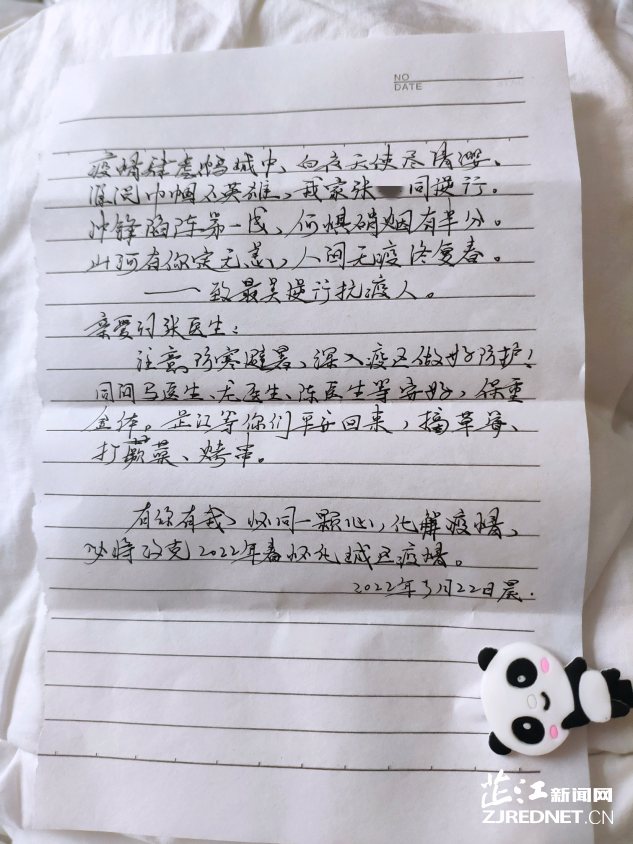 NO
DATE
疫情肆虐鹤城中、白衣天使尽请缨、
谁说巾帼不英雄，我家张 同逆行。
冲锋陷阵第一线，何惧硝烟有半分。
山河有你定无恙，人间无疫终复春。
——致最美逆行抗疫人。
亲爱的张医生：
注意防寒避暑，深入疫区做好防护！
同问马医生、龙医生、陈医生等安好，保重
身体。芷江等你们平安回来，摘草莓、
打蕨菜、烤串。
有你有我、怀同一颗心，化解疫情、
必将攻克2022年春怀化城区疫情。
2022年3月22日晨.
芷江新闻网
ZJREDNET.CN